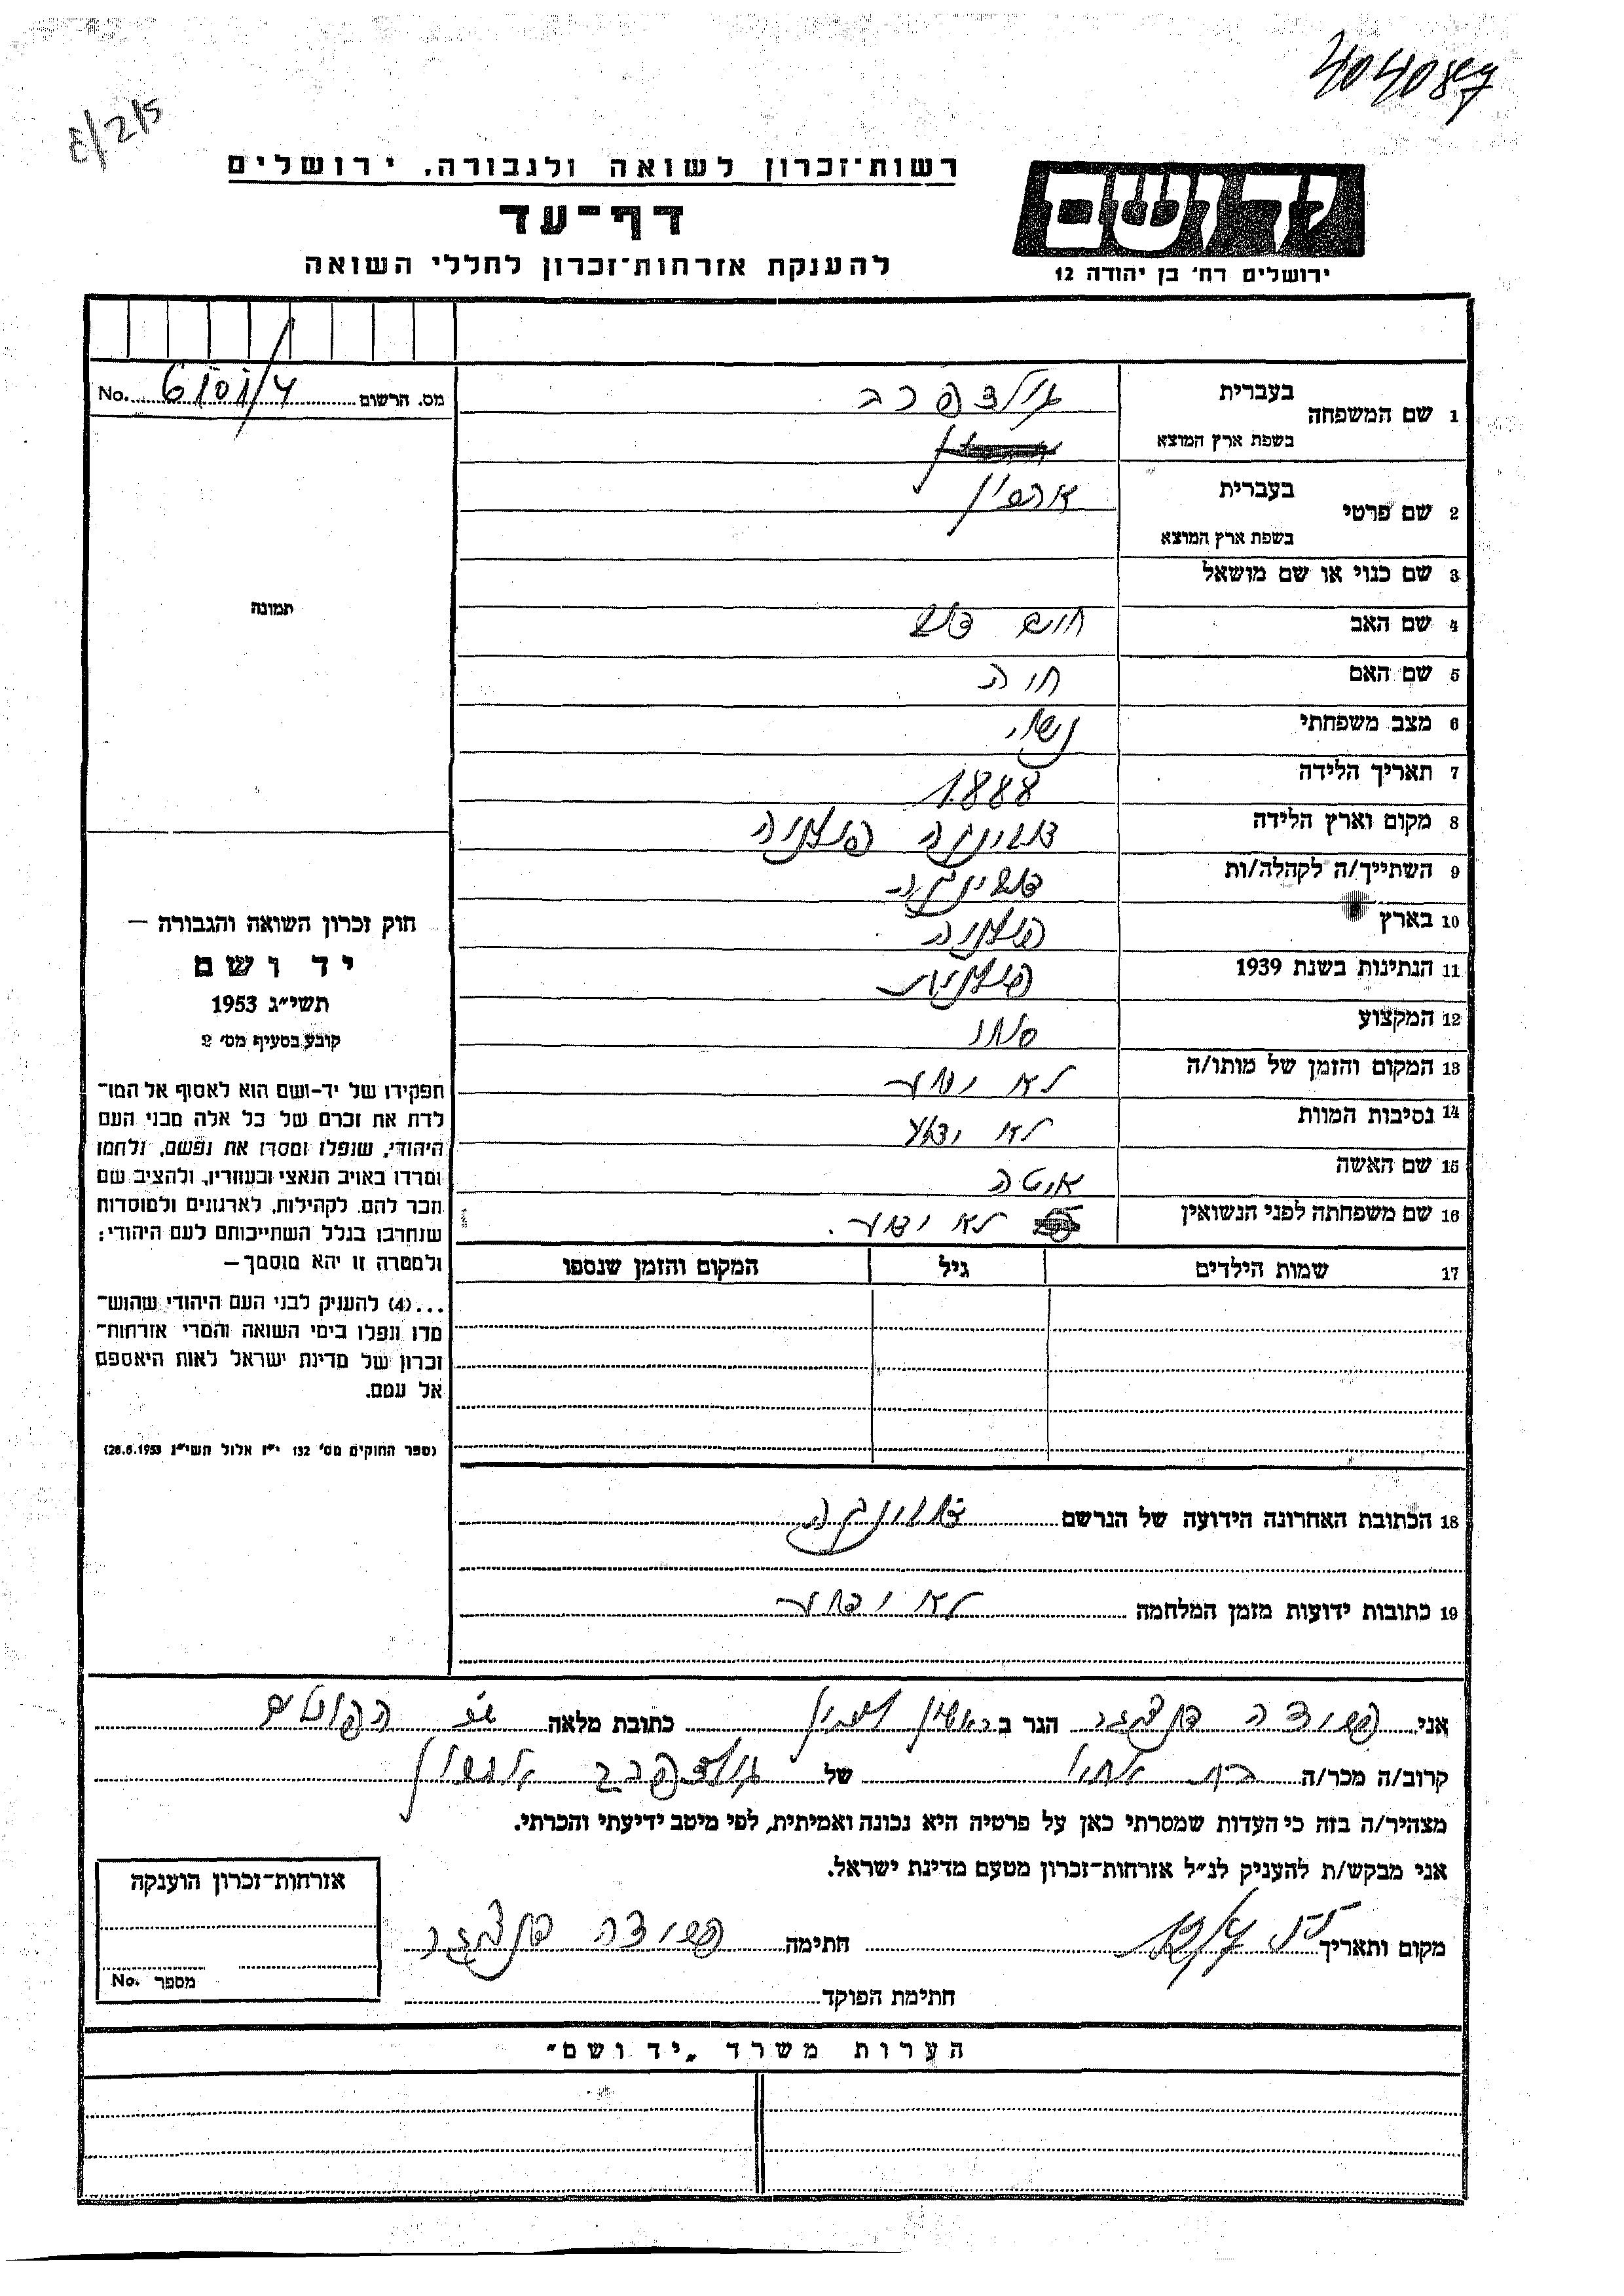 404087
רשות־זכרון לשואה ולגבורה, ירושלים
דף־עד
להענקת אזרחות־זכרון לחללי השואה
יד ושם
ירושלים רח' בן יהודה 12
מס. הרשום No.
1 שם המשפחה בעברית גולדפרב
בשפת ארץ המוצא
2 שם פרטי בעברית
בשפת ארץ המוצא
3 שם כנוי או שם מושאל
4 שם האב חיים
5 שם האם חיה
6 מצב משפחתי נשוי
7 תאריך הלידה 1888
8 מקום וארץ הלידה פולניה
9 השתייך/ה לקהלה/ות
10 בארץ פולניה
11 הנתינות בשנת 1939 פולנית
12 המקצוע סוחר
13 המקום והזמן של מותו/ה לא ידוע
14 נסיבות המוות לא ידוע
15 שם האשה איטה
16 שם משפחתה לפני הנשואין לא ידוע.
17 שמות הילדים גיל המקום והזמן שנספו
תמונה
חוק זכרון השואה והגבורה —
יד ושם
תשי״ג 1953
קובע בסעיף מס' 2
תפקידו של יד-ושם הוא לאסוף אל המו־
לדת את זכרם של כל אלה מבני העם
היהודי, שנפלו ומסרו את נפשם, נלחמו
ומרדו באויב הנאצי ובעוזריו, ולהציב שם
וזכר להם, לקהילות, לארגונים ולמוסדות
שנחרבו בגלל השתייכותם לעם היהודי;
ולמטרה זו יהא מוסמך—
...(4) להעניק לבני העם היהודי שהוש־
מדו ונפלו בימי השואה והמרי אזרחות־
זכרון של מדינת ישראל לאות היאספם
אל עמם.
(ספר החוקים מס' 132 י״ז אלול תשי״ג 28.8.1953)
18 הכתובת האחרונה הידועה של הנרשם
19 כתובות ידועות מזמן המלחמה לא ידוע
אני הגר ב ראשון לציון כתובת מלאה
קרוב/ה מכר/ה של גולדפרב
מצהיר/ה בזה כי העדות שמסרתי כאן על פרטיה היא נכונה ואמיתית, לפי מיטב ידיעתי והכרתי.
אני מבקש/ת להעניק לנ״ל אזרחות־זכרון מטעם מדינת ישראל.
מקום ותאריך חתימה
חתימת הפוקד
אזרחות־זכרון הוענקה
מספר No.
הערות משרד „יד ושם״